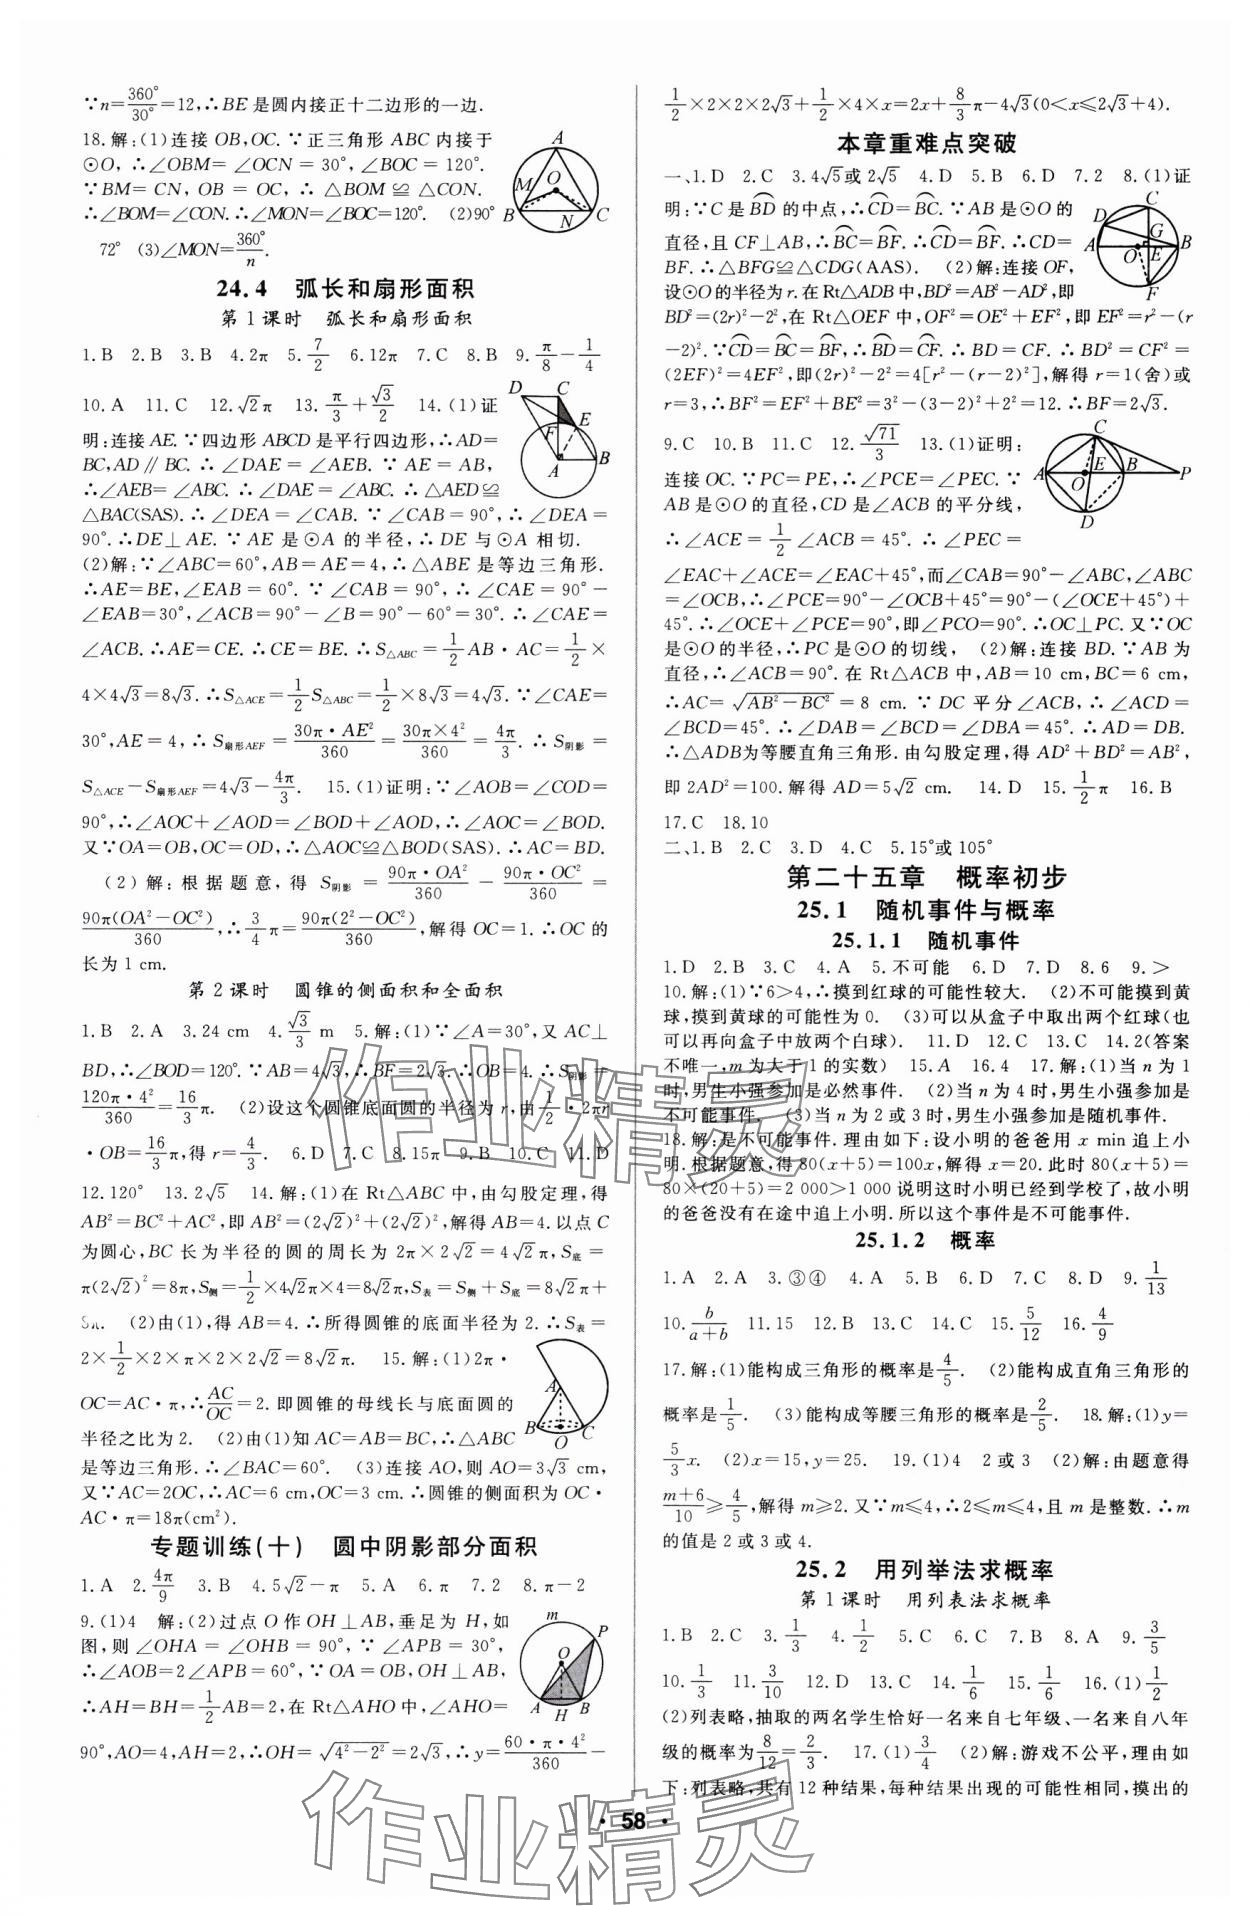 ∵n=360°/30°=12,∴BE是圆内接正十二边形的一边.
18.解:(1)连接OB,OC.∵正三角形ABC内接于
⊙O,∴∠OBM=∠OCN=30°,∠BOC=120°.
∵BM=CN,OB=OC,∴△BOM≌△CON.
∴∠BOM=∠CON.∴∠MON=∠BOC=120°. (2)90°
72° (3)∠MON=360°/n.
24.4 弧长和扇形面积
第1课时 弧长和扇形面积
1.B 2.B 3.B 4.2π 5.7/2 6.12π 7.C 8.B 9.π/8-1/4
10.A 11.C 12.√2π 13.π/3+√3/2 14.(1)证
明:连接AE.∵四边形ABCD是平行四边形,∴AD=
BC,AD∥BC.∴∠DAE=∠AEB.∵AE=AB,
∴∠AEB=∠ABC.∴∠DAE=∠ABC.∴△AED≌
△BAC(SAS).∴∠DEA=∠CAB.∵∠CAB=90°,∴∠DEA=
90°.∴DE⊥AE.∵AE是⊙A的半径,∴DE与⊙A相切.
(2)解:∵∠ABC=60°,AB=AE=4,∴△ABE是等边三角形.
∴AE=BE,∠EAB=60°.∵∠CAB=90°,∴∠CAE=90°-
∠EAB=30°,∠ACB=90°-∠B=90°-60°=30°.∴∠CAE=
∠ACB.∴AE=CE.∴CE=BE.∴S△ABC=1/2AB·AC=1/2×
4×4√3=8√3.∴S△ACE=1/2S△ABC=1/2×8√3=4√3.∵∠CAE=
30°,AE=4,∴S扇形AEF=30π·AE²/360=30π×4²/360=4π/3.∴S阴影=
S△ACE-S扇形AEF=4√3-4π/3. 15.(1)证明:∵∠AOB=∠COD=
90°,∴∠AOC+∠AOD=∠BOD+∠AOD,∴∠AOC=∠BOD.
又∵OA=OB,OC=OD,∴△AOC≌△BOD(SAS).∴AC=BD.
(2)解:根据题意,得S阴影=90π·OA²/360-90π·OC²/360=
90π(OA²-OC²)/360,∴3/4π=90π(2²-OC²)/360,解得OC=1.∴OC的
长为1 cm.
第2课时 圆锥的侧面积和全面积
1.B 2.A 3.24 cm 4.√3/3 m 5.解:(1)∵∠A=30°,又AC⊥
BD,∴∠BOD=120°.∵AB=4√3,∴BF=2√3.∴OB=4.∴S阴影=
120π·4²/360=16/3π. (2)设这个圆锥底面圆的半径为r,由1/2·2πr
·OB=16/3π,得r=4/3. 6.D 7.C 8.15π 9.B 10.C 11.D
12.120° 13.2√5 14.解:(1)在Rt△ABC中,由勾股定理,得
AB²=BC²+AC²,即AB²=(2√2)²+(2√2)²,解得AB=4.以点C
为圆心,BC长为半径的圆的周长为2π×2√2=4√2π,S底=
π(2√2)²=8π,S侧=1/2×4√2π×4=8√2π,S表=S侧+S底=8√2π+
8π. (2)由(1),得AB=4.∴所得圆锥的底面半径为2.∴S表=
2×1/2×2×π×2×2√2=8√2π. 15.解:(1)2π·
OC=AC·π,∴AC/OC=2.即圆锥的母线长与底面圆的
半径之比为2. (2)由(1)知AC=AB=BC,∴△ABC
是等边三角形.∴∠BAC=60°. (3)连接AO,则AO=3√3 cm,
又∵AC=2OC,∴AC=6 cm,OC=3 cm.∴圆锥的侧面积为OC·
AC·π=18π(cm²).
专题训练(十) 圆中阴影部分面积
1.A 2.4π/9 3.B 4.5√2-π 5.A 6.π 7.2 8.π-2
9.(1)4 解:(2)过点O作OH⊥AB,垂足为H,如
图,则∠OHA=∠OHB=90°,∵∠APB=30°,
∴∠AOB=2∠APB=60°,∵OA=OB,OH⊥AB,
∴AH=BH=1/2AB=2,在Rt△AHO中,∠AHO=
90°,AO=4,AH=2,∴OH=√4²-2²=2√3,∴y=60·π·4²/360-
1/2×2×2×2√3+1/2×4×x=2x+8/3π-4√3(0<x≤2√3+4).
本章重难点突破
一、1.D 2.C 3.4√5或2√5 4.D 5.B 6.D 7.2 8.(1)证
明:∵C是BD的中点,∴CD=BC.∵AB是⊙O的
直径,且CF⊥AB,∴BC=BF.∴CD=BF.∴CD=
BF.∴△BFG≌△CDG(AAS). (2)解:连接OF,
设⊙O的半径为r.在Rt△ADB中,BD²=AB²-AD²,即
BD²=(2r)²-2²,在Rt△OEF中,OF²=OE²+EF²,即EF²=r²-(r
-2)².∵CD=BC=BF,∴BD=CF.∴BD=CF.∴BD²=CF²=
(2EF)²=4EF²,即(2r)²-2²=4[r²-(r-2)²],解得r=1(舍)或
r=3,∴BF²=EF²+BE²=3²-(3-2)²+2²=12.∴BF=2√3.
9.C 10.B 11.C 12.√71/3 13.(1)证明:
连接OC.∵PC=PE,∴∠PCE=∠PEC.∵
AB是⊙O的直径,CD是∠ACB的平分线,
∴∠ACE=1/2∠ACB=45°.∴∠PEC=
∠EAC+∠ACE=∠EAC+45°,而∠CAB=90°-∠ABC,∠ABC
=∠OCB,∴∠PCE=90°-∠OCB+45°=90°-(∠OCE+45°)+
45°.∴∠OCE+∠PCE=90°,即∠PCO=90°.∴OC⊥PC.又∵OC
是⊙O的半径,∴PC是⊙O的切线, (2)解:连接BD.∵AB为
直径,∴∠ACB=90°.在Rt△ACB中,AB=10 cm,BC=6 cm,
∴AC=√AB²-BC²=8 cm.∵DC平分∠ACB,∴∠ACD=
∠BCD=45°.∴∠DAB=∠BCD=∠DBA=45°.∴AD=DB.
∴△ADB为等腰直角三角形.由勾股定理,得AD²+BD²=AB²,
即2AD²=100.解得AD=5√2 cm. 14.D 15.1/2π 16.B
17.C 18.10
二、1.B 2.C 3.D 4.C 5.15°或105°
第二十五章 概率初步
25.1 随机事件与概率
25.1.1 随机事件
1.D 2.B 3.C 4.A 5.不可能 6.D 7.D 8.6 9.>
10.解:(1)∵6>4,∴摸到红球的可能性较大. (2)不可能摸到黄
球,摸到黄球的可能性为0. (3)可以从盒子中取出两个红球(也
可以再向盒子中放两个白球). 11.D 12.C 13.C 14.2(答案
不唯一,m为大于1的实数) 15.A 16.4 17.解:(1)当n为1
时,男生小强参加是必然事件. (2)当n为4时,男生小强参加是
不可能事件. (3)当n为2或3时,男生小强参加是随机事件.
18.解:是不可能事件.理由如下:设小明的爸爸用x min追上小
明.根据题意,得80(x+5)=100x,解得x=20.此时80(x+5)=
80×(20+5)=2 000>1 000说明这时小明已经到学校了,故小明
的爸爸没有在途中追上小明.所以这个事件是不可能事件.
25.1.2 概率
1.A 2.A 3.③④ 4.A 5.B 6.D 7.C 8.D 9.1/13
10.b/(a+b) 11.15 12.B 13.C 14.C 15.5/12 16.4/9
17.解:(1)能构成三角形的概率是4/5. (2)能构成直角三角形的
概率是1/5. (3)能构成等腰三角形的概率是2/5. 18.解:(1)y=
5/3x. (2)x=15,y=25. 19.(1)4 2或3 (2)解:由题意得
(m+6)/10≥4/5,解得m≥2.又∵m≤4,∴2≤m≤4,且m是整数.∴m
的值是2或3或4.
25.2 用列举法求概率
第1课时 用列表法求概率
1.B 2.C 3.1/3 4.1/2 5.C 6.C 7.B 8.A 9.3/5
10.1/3 11.3/10 12.D 13.C 14.1/6 15.1/6 16.(1)1/2
(2)列表略,抽取的两名学生恰好一名来自七年级、一名来自八年
级的概率为8/12=2/3. 17.(1)3/4 (2)解:游戏不公平,理由如
下:列表略,共有12种结果,每种结果出现的可能性相同,摸出的
·58·
作业精灵
作业精灵